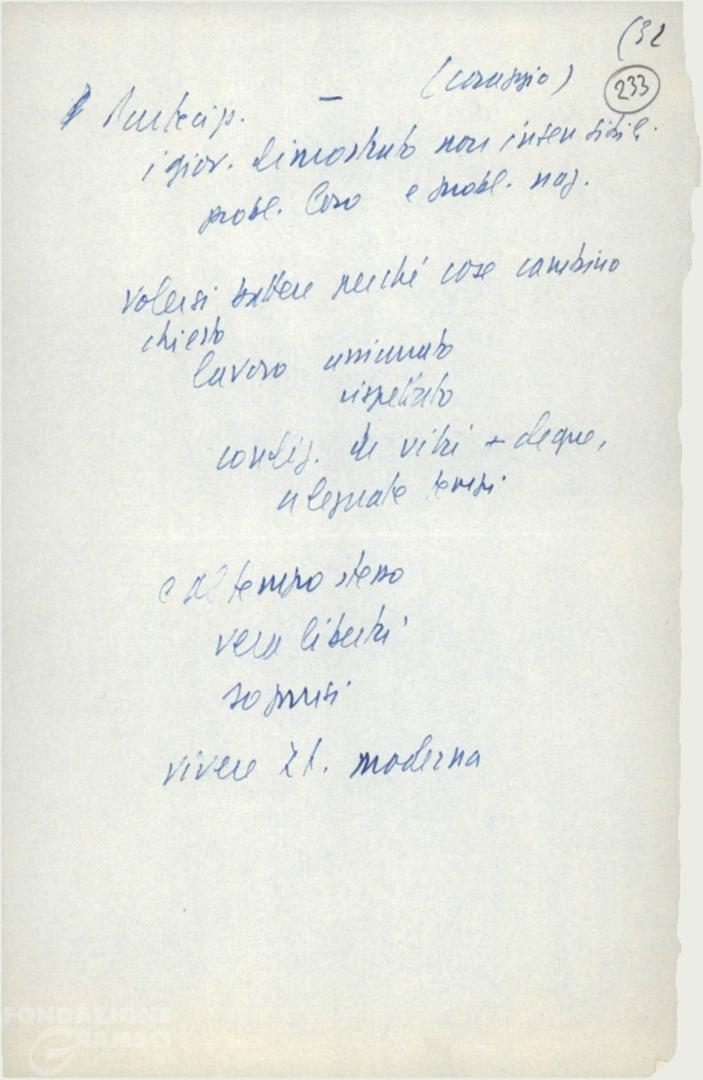 (32
233
Partecip. — (coraggio)
i giov. dimostrato non insensibil.
probl. loro e probl. naz.
volersi battere perché cose cambino
chiesto
lavoro assicurato
rispettato
condiz. di vita + degne,
adeguate tempi
e al tempo stesso
vera libertà
soprusi
vivere It. moderna
FONDAZIONE
GRAMSCI